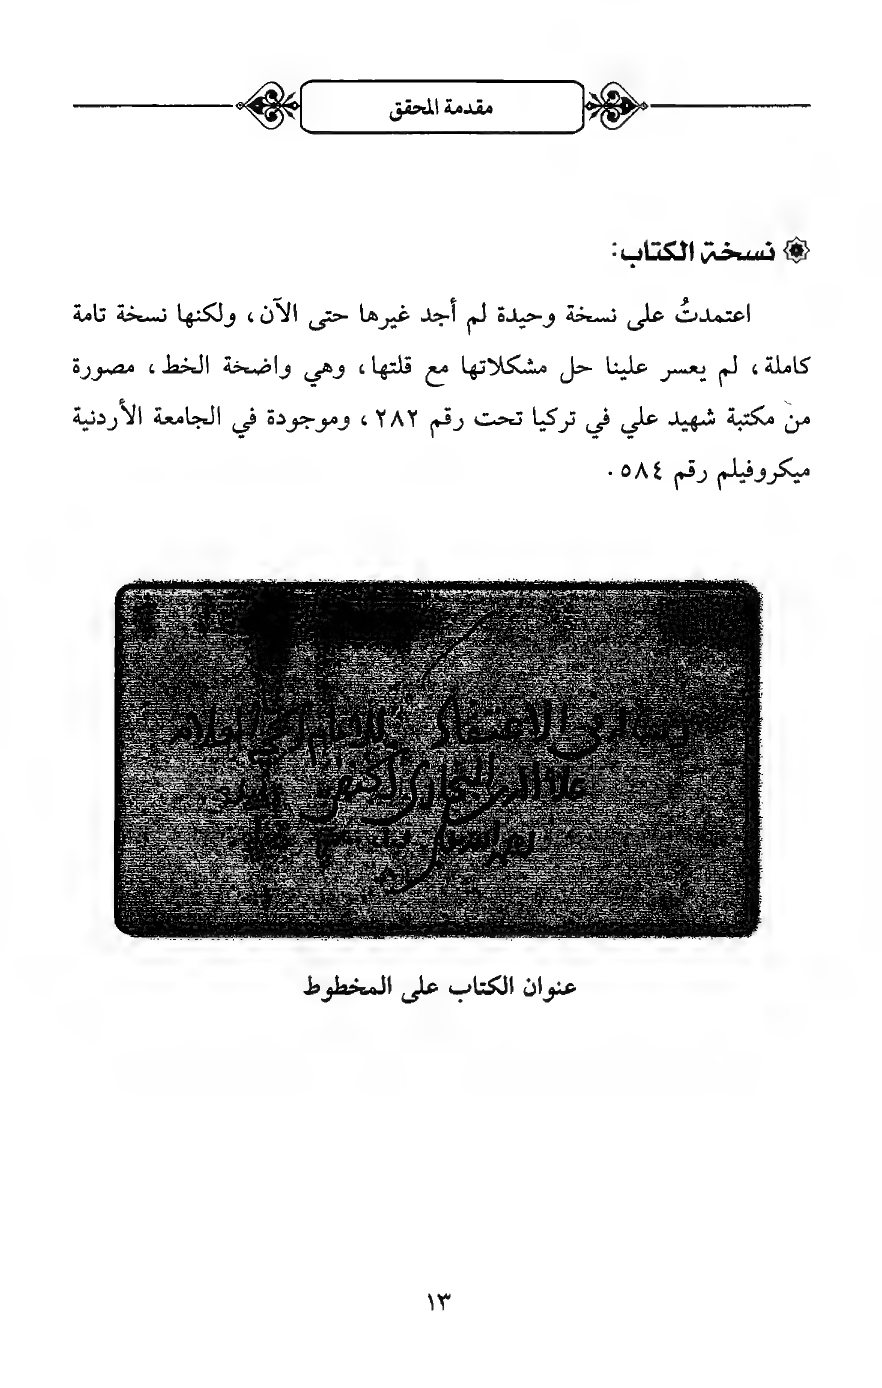 مقدمة المحقق
نسخة الكتاب:
اعتمدتُ على نسخة وحيدة لم أجد غيرها حتى الآن، ولكنها نسخة تامة
كاملة، لم يعسر علينا حل مشكلاتها مع قلتها، وهي واضخة الخط، مصورة
من مكتبة شهيد علي في تركيا تحت رقم ٢٨٢، وموجودة في الجامعة الأردنية
ميكروفيلم رقم ٥٨٤.
رسالة في الاعتقاد للامام
علاء الدين البخاري
عنوان الكتاب على المخطوط
١٣